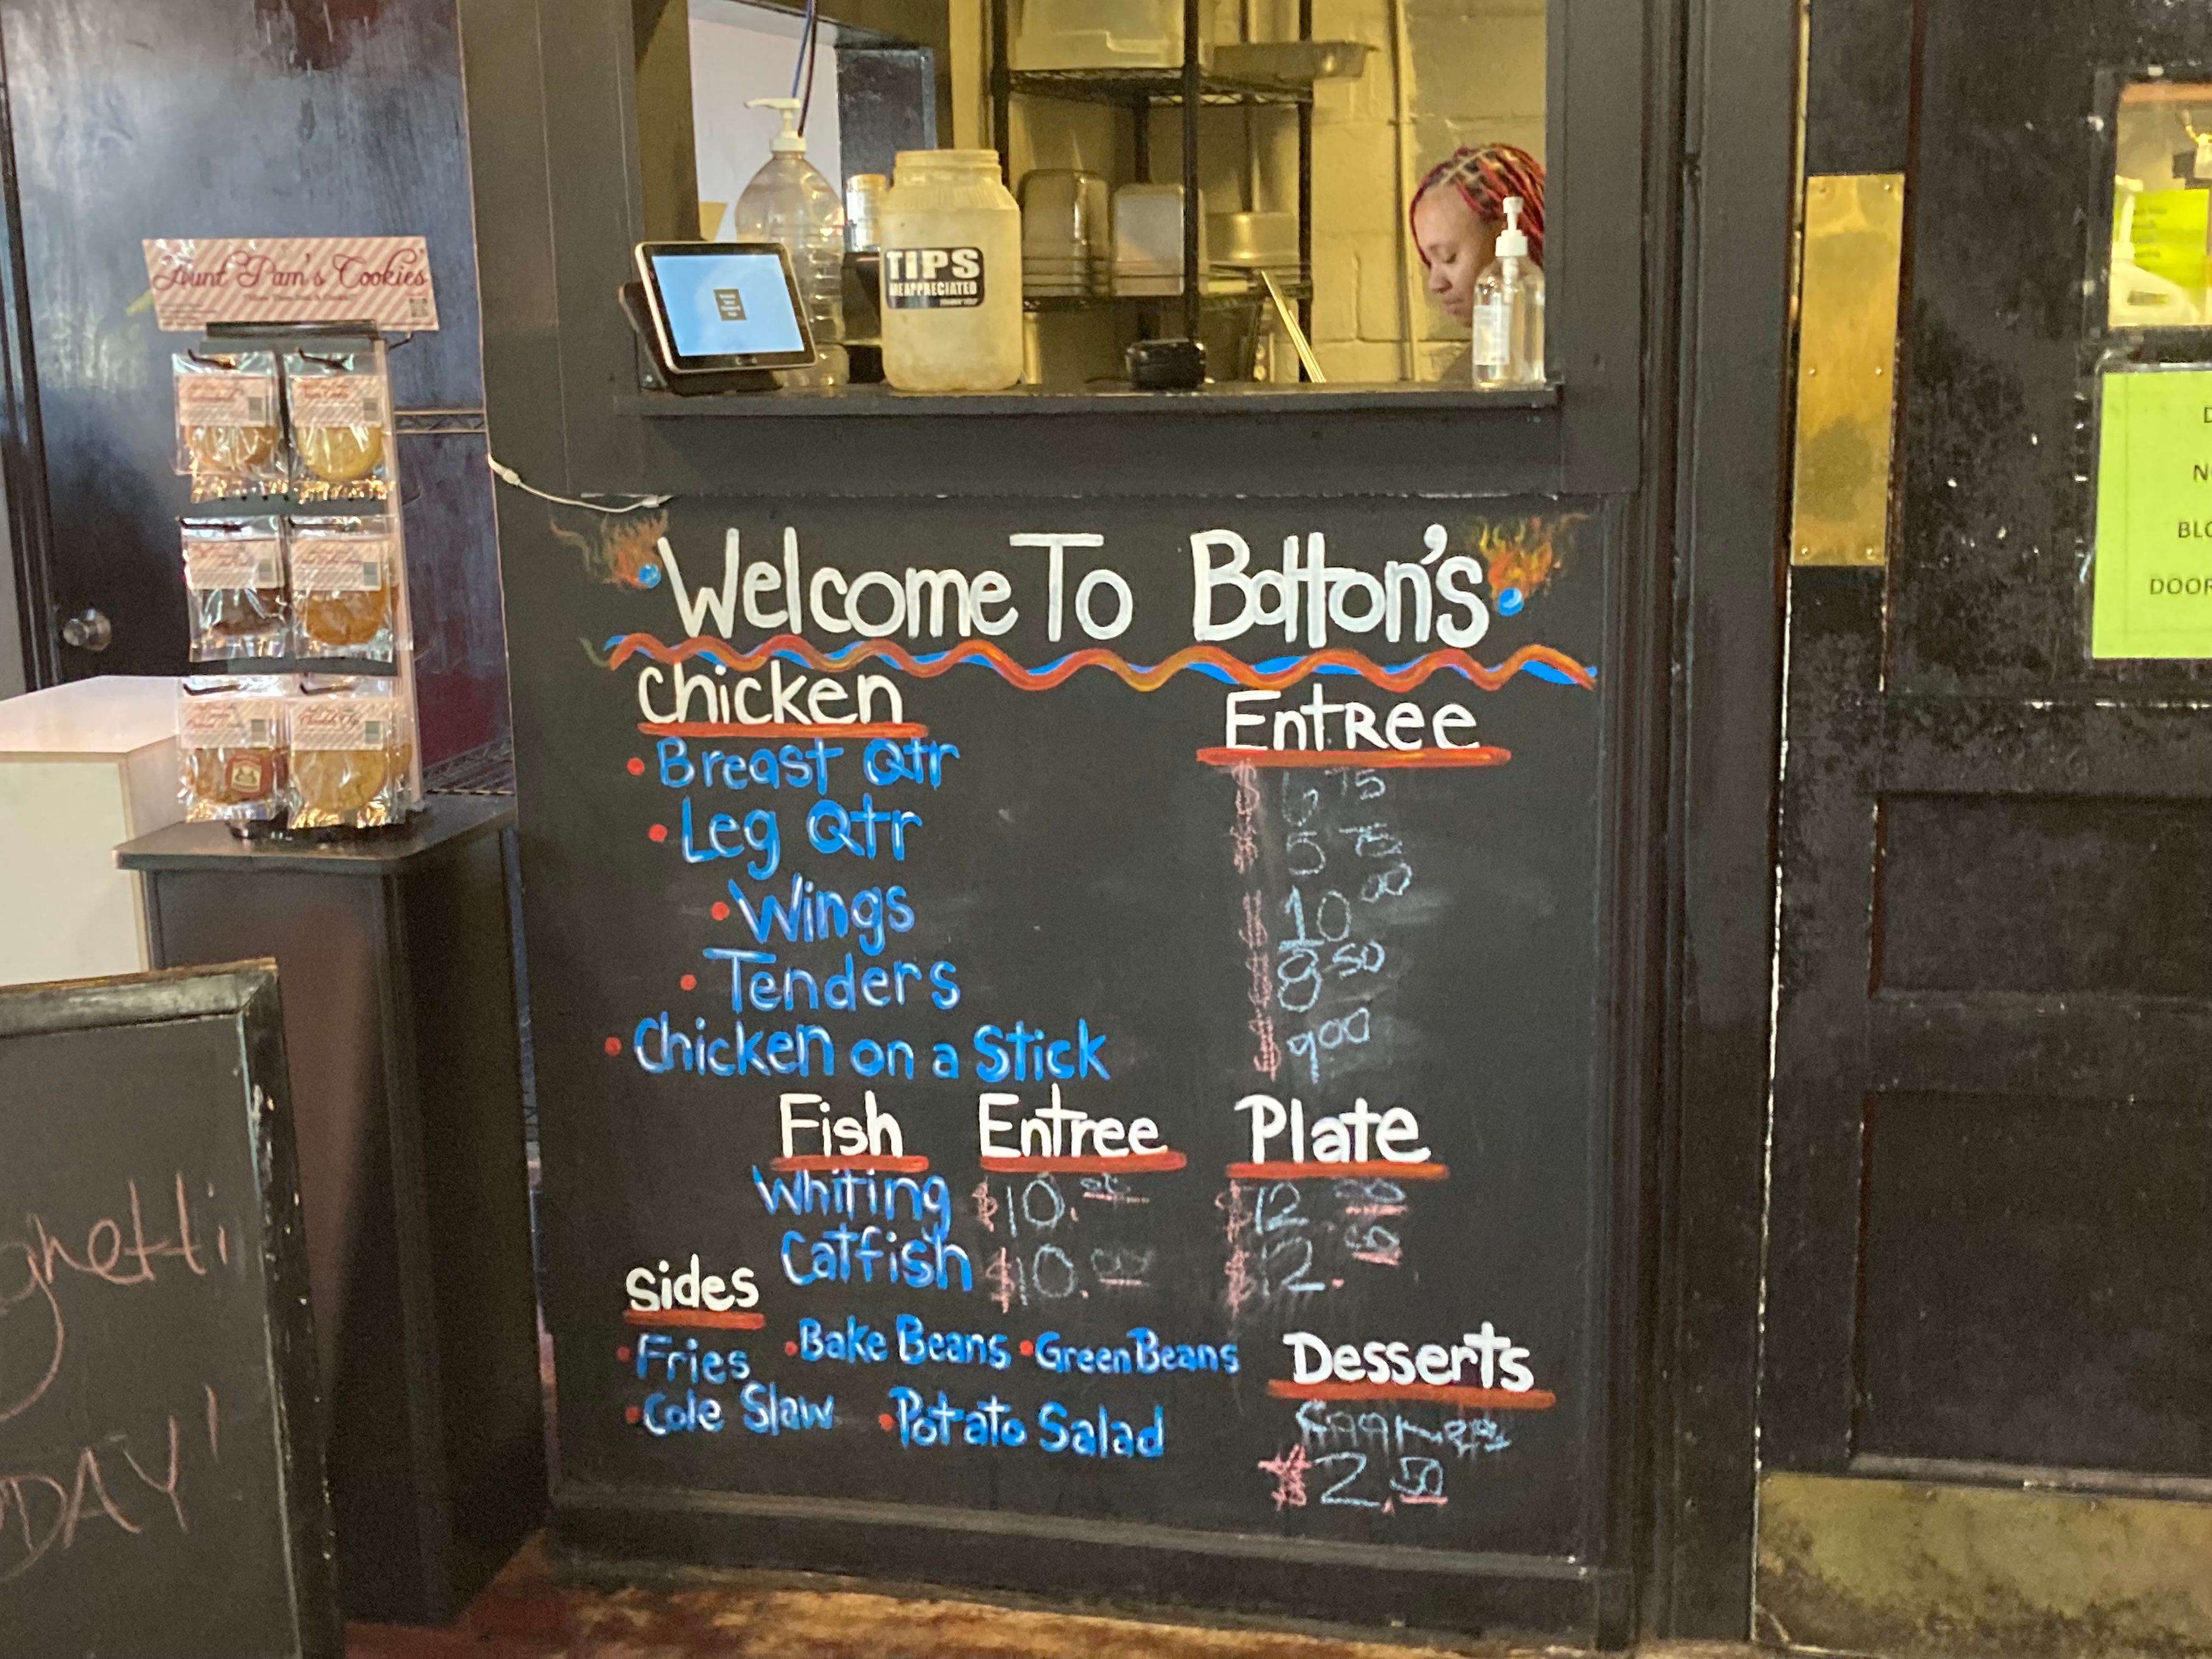 Aunt Pam's Cookies
TIPS
ARE APPRECIATED
Welcome To Bolton's
Chicken Entree
• Breast Qtr $ 6 75
• Leg Qtr $ 5 75
• Wings $ 10 00
• Tenders $ 8 50
• Chicken on a Stick $ 9 00
Fish Entree Plate
Whiting $10.00 $12 00
Catfish $10.00 $12.50
Sides
• Fries • Bake Beans • Green Beans
• Cole Slaw • Potato Salad
Desserts
$2.50
ghetti
DAY!
D
N
BLO
DOOR